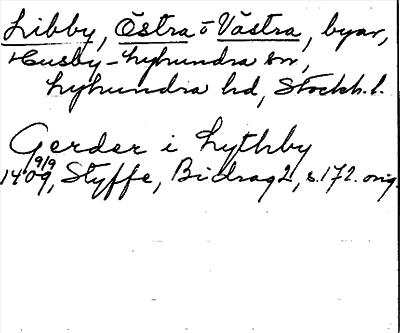 Libby, Östra o Västra, byar,
Husby-Lyhundra sn,
Lyhundra hd, Stockh. l.
Gerder i Lythby
1409 9/9, Styffe, Bidrag 2, s. 172. orig.